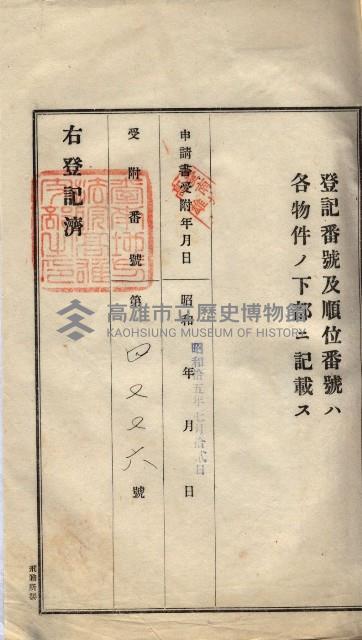 登記番號及順位番號ハ
各物件ノ下部ニ記載ス
申請書受附年月日 昭和 年 月 日
昭和拾五年七月拾弐日
受附番號 第 四又又六 號
右登記濟
高雄市立歷史博物館
KAOHSIUNG MUSEUM OF HISTORY